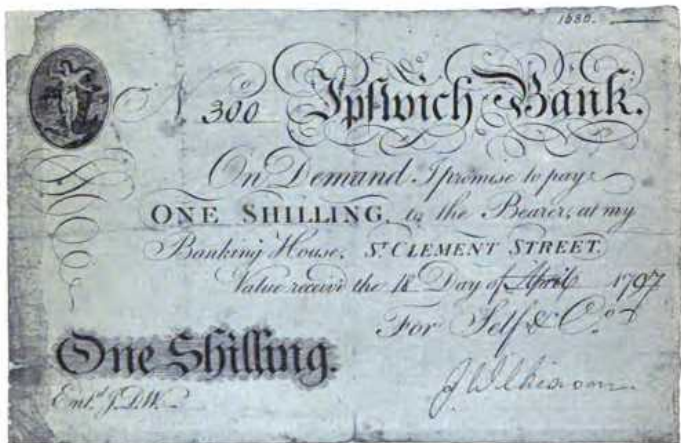 1680.
No. 300 Ipswich Bank.
On Demand I promise to pay
ONE SHILLING, to the Bearer, at my
Banking House, St. CLEMENT STREET.
Value receiv'd the 18 Day of April 1797
For Self & Co.
One Shilling.
J. Wilkinson.
Ent.d J.D.W.